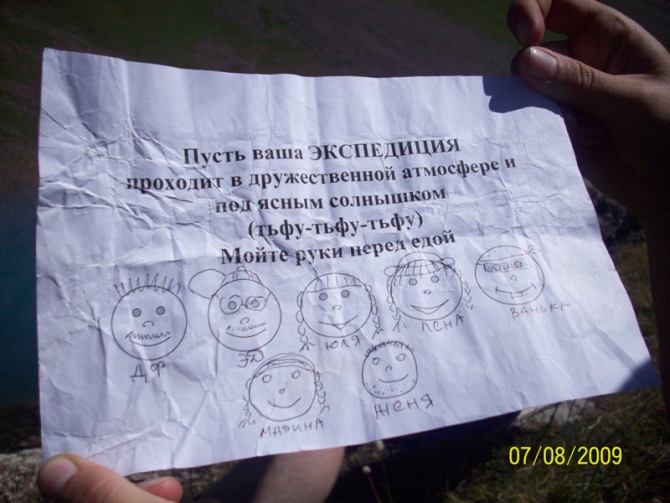 Пусть ваша ЭКСПЕДИЦИЯ
проходит в дружественной атмосфере и
под ясным солнышком
(тьфу-тьфу-тьфу)
Мойте руки перед едой
ДФ
ЮЛЯ
ЛЕНА
ВАНЬКА
МАРИНА
ЖЕНЯ
07/08/2009